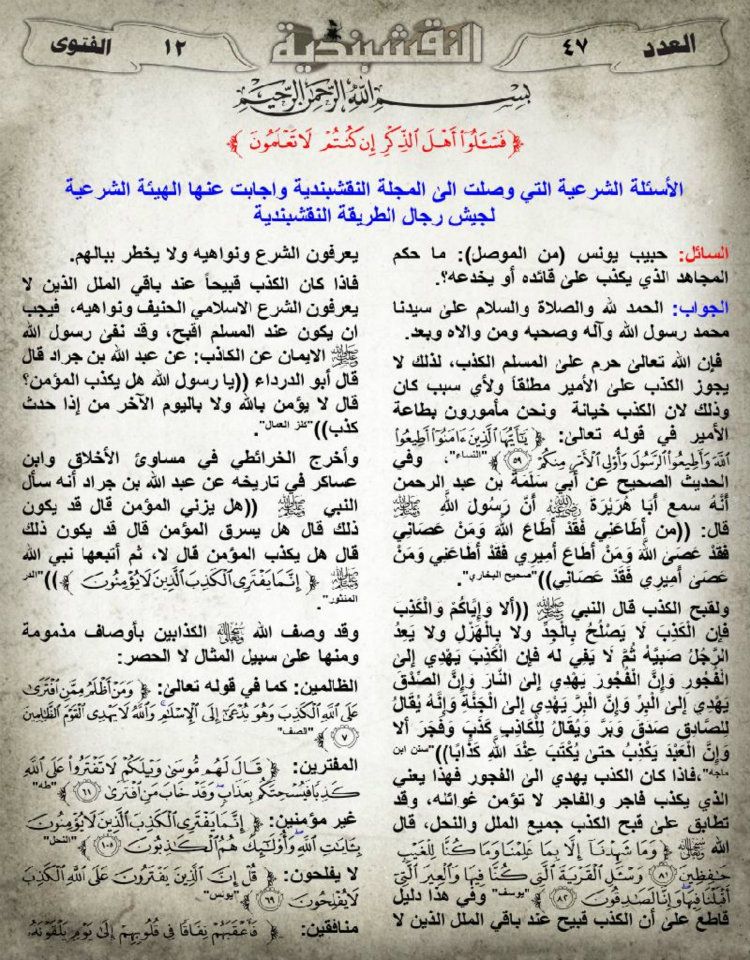 العدد
٤٧
النقشبندية
١٢
الفتوى
بسم الله الرحمن الرحيم
﴿ فَسْـَٔلُوٓا۟ أَهْلَ ٱلذِّكْرِ إِن كُنتُمْ لَا تَعْلَمُونَ ﴾
الأسئلة الشرعية التي وصلت الى المجلة النقشبندية واجابت عنها الهيئة الشرعية
لجيش رجال الطريقة النقشبندية
السائل: حبيب يونس (من الموصل): ما حكم
المجاهد الذي يكذب على قائده أو يخدعه؟.
الجواب: الحمد لله والصلاة والسلام على سيدنا
محمد رسول الله وآله وصحبه ومن والاه وبعد.
فإن الله تعالى حرم على المسلم الكذب، لذلك لا
يجوز الكذب على الأمير مطلقاً ولأي سبب كان
وذلك لان الكذب خيانة ونحن مأمورون بطاعة
الأمير في قوله تعالى: ﴿ يَٰٓأَيُّهَا ٱلَّذِينَ ءَامَنُوٓا۟ أَطِيعُوا۟
ٱللَّهَ وَأَطِيعُوا۟ ٱلرَّسُولَ وَأُو۟لِى ٱلْأَمْرِ مِنكُمْ ﴾ ٥٩ "النساء"، وفي
الحديث الصحيح عن أبي سلمة بن عبد الرحمن
أنَّه سمع أبَا هُرَيْرَةَ أنَّ رَسُولَ اللَّهِ ﷺ
قال: ((من أطَاعَني فَقَدْ أطَاعَ اللَّهَ وَمَنْ عَصَانِي
فقدْ عَصَى اللَّهَ وَمَنْ أطاعَ أمِيري فَقَدْ أطَاعَنِي وَمَنْ
عَصَى أمِيري فَقَدْ عَصَانِي))"صحيح البخاري".
ولقبح الكذب قال النبي ﷺ ((ألا وَإيَّاكُمْ وَالْكَذِبَ
فإن الْكَذِبَ لَا يَصْلُحُ بِالْجِدِّ ولا بِالْهَزْلِ ولا يَعِدُ
الرَّجُلُ صَبِيَّهُ ثُمَّ لَا يَفِي له فإن الْكَذِبَ يَهْدِي إلى
الْفُجُورِ وَإِنَّ الْفُجُورَ يَهْدِي إلى النَّارِ وَإِنَّ الصِّدْقَ
يَهْدِي إلى الْبِرِّ وَإِنَّ الْبِرَّ يَهْدِي إلى الْجَنَّةِ وَإِنَّهُ يُقَالُ
لِلصَّادِقِ صَدَقَ وَبَرَّ وَيُقَالُ لِلْكَاذِبِ كَذَبَ وَفَجَرَ ألا
وَإِنَّ الْعَبْدَ يَكْذِبُ حتى يُكْتَبَ عِنْدَ اللَّهِ كَذَّابًا))"سنن ابن
ماجه"،فاذا كان الكذب يهدي الى الفجور فهذا يعني
الذي يكذب فاجر والفاجر لا تؤمن غوائله، وقد
تطابق على قبح الكذب جميع الملل والنحل، قال
الله ﴿ وَمَا شَهِدْنَآ إِلَّا بِمَا عَلِمْنَا وَمَا كُنَّا لِلْغَيْبِ
حَٰفِظِينَ ٨١ وَسْـَٔلِ ٱلْقَرْيَةَ ٱلَّتِى كُنَّا فِيهَا وَٱلْعِيرَ ٱلَّتِىٓ
أَقْبَلْنَا فِيهَا وَإِنَّا لَصَٰدِقُونَ ٨٢ ﴾ "يوسف" وفي هذا دليل
قاطع على أن الكذب قبيح عند باقي الملل الذين لا
يعرفون الشرع ونواهيه ولا يخطر ببالهم.
فاذا كان الكذب قبيحاً عند باقي الملل الذين لا
يعرفون الشرع الاسلامي الحنيف ونواهيه، فيجب
ان يكون عند المسلم اقبح، وقد نفى رسول الله
ﷺ الايمان عن الكاذب: عن عبد الله بن جراد قال
قال أبو الدرداء ((يا رسول الله هل يكذب المؤمن؟
قال لا يؤمن بالله ولا باليوم الآخر من إذا حدث
كذب))"كنز العمال".
وأخرج الخرائطي في مساوئ الأخلاق وابن
عساكر في تاريخه عن عبد الله بن جراد أنه سأل
النبي ﷺ ((هل يزني المؤمن قال قد يكون
ذلك قال هل يسرق المؤمن قال قد يكون ذلك
قال هل يكذب المؤمن قال لا، ثم أتبعها نبي الله
ﷺ ﴿ إِنَّمَا يَفْتَرِى ٱلْكَذِبَ ٱلَّذِينَ لَا يُؤْمِنُونَ ﴾))"الدر
المنثور".
وقد وصف الله الكذابين بأوصاف مذمومة
ومنها على سبيل المثال لا الحصر:
الظالمين: كما في قوله تعالى: ﴿ وَمَنْ أَظْلَمُ مِمَّنِ ٱفْتَرَىٰ
عَلَى ٱللَّهِ ٱلْكَذِبَ وَهُوَ يُدْعَىٰٓ إِلَى ٱلْإِسْلَٰمِ وَٱللَّهُ لَا يَهْدِى ٱلْقَوْمَ ٱلظَّٰلِمِينَ
٧ ﴾ "الصف"
المفترين: ﴿ قَالَ لَهُم مُّوسَىٰ وَيْلَكُمْ لَا تَفْتَرُوا۟ عَلَى ٱللَّهِ
كَذِبًا فَيُسْحِتَكُم بِعَذَابٍ وَقَدْ خَابَ مَنِ ٱفْتَرَىٰ ٦١ ﴾ "طه"
غير مؤمنين: ﴿ إِنَّمَا يَفْتَرِى ٱلْكَذِبَ ٱلَّذِينَ لَا يُؤْمِنُونَ
بِـَٔايَٰتِ ٱللَّهِ وَأُو۟لَٰٓئِكَ هُمُ ٱلْكَٰذِبُونَ ١٠٥ ﴾ "النحل"
لا يفلحون: ﴿ قُلْ إِنَّ ٱلَّذِينَ يَفْتَرُونَ عَلَى ٱللَّهِ ٱلْكَذِبَ
لَا يُفْلِحُونَ ٦٩ ﴾ "يونس"
منافقين: ﴿ فَأَعْقَبَهُمْ نِفَاقًا فِى قُلُوبِهِمْ إِلَىٰ يَوْمِ يَلْقَوْنَهُۥ